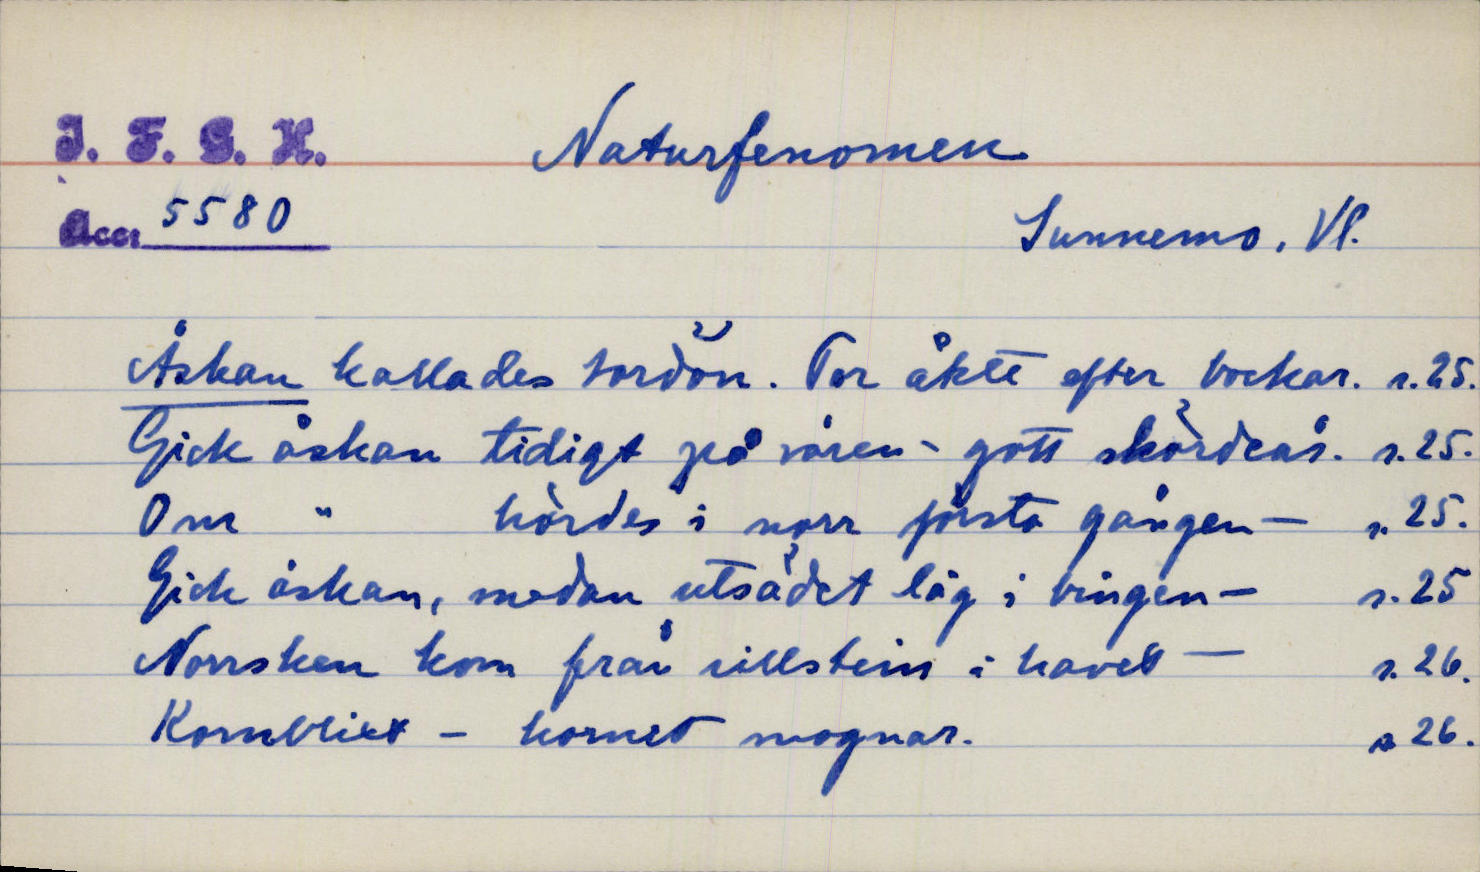 I. F. G. H. Naturfenomen
Acc: 5580
Sunnemo, Vl.
Åskan kallades tordön. Tor åkte efter bockar. s. 25.
Gick åskan tidigt på våren - gott skördeår. s. 25.
Om " hördes i norr första gången — s. 25.
Gick åskan, medan utsädet låg i bingen — s. 25
Norrsken kom från sillstein i havet — s. 26.
Kornblixt - kornet mognar. s 26.